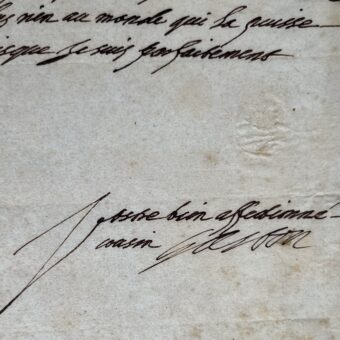 rien au monde qui la puisse
je suis parfaitement
vostre bien affectionné
cousin Gaston